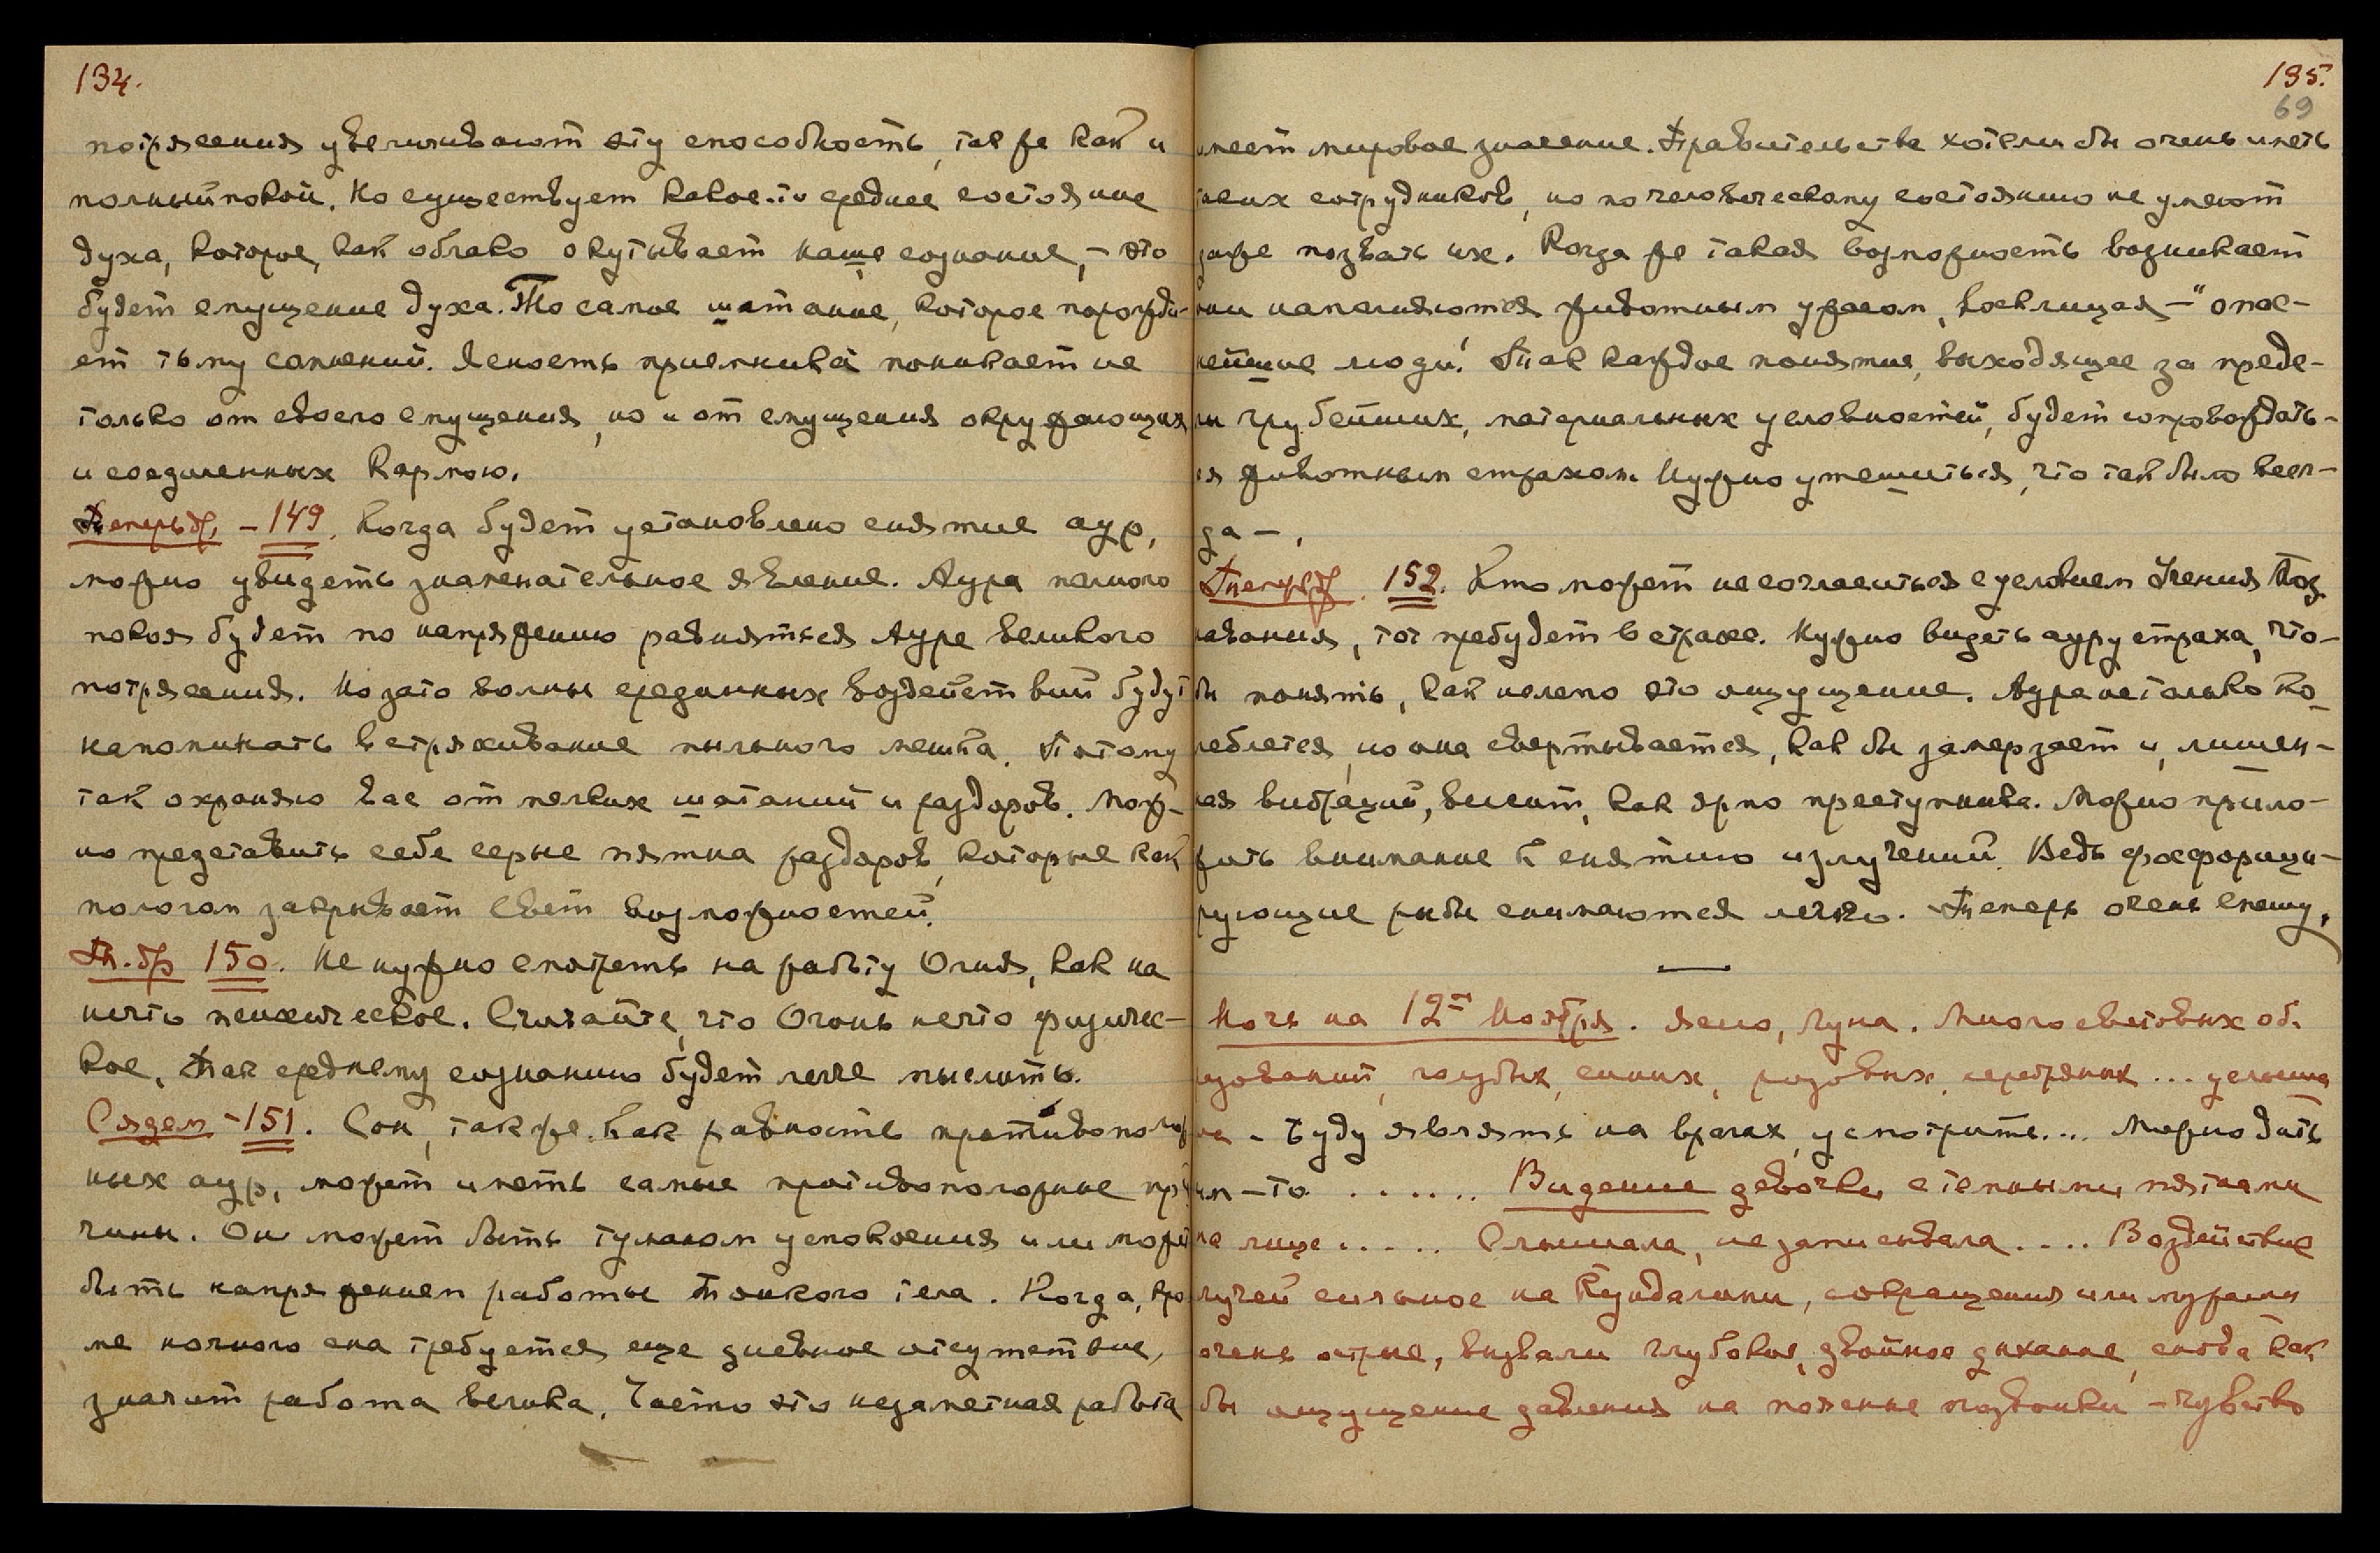 134.
потрясения увеличивают эту способность, так же как и
полный покой. Но существует какое-то среднее состояние
духа, которое, как облако окутывает наше сознание, – это
будет спущение духа. То самое шатание, которое порожда-
ет тьму сомнений. Ясность приемника поникает не
только от своего спущения, но и от спущения окружающих
и соединенных Кармою.
Теперь др. – 149. Когда будет установлено снятие аур,
можно увидеть знаменательное явление. Аура полного
покоя будет по напряжению равняться Ауре великого
потрясения. Но зато волны срединных воздействий будут
напоминать встряхивание пыльного мешка. Потому
так охраняю вас от мелких шатаний и раздоров. Мож-
но представить себе серые пятна раздоров, которые как
пологом закрывает Свет возможностей.
Т. др 150. Не нужно смотреть на работу Огня, как на
нечто психическое. Считайте, что Огонь нечто физичес-
кое. Так среднему сознанию будет легче мыслить.
Сядем – 151. Сон, так же как равность противополож
ных аур, может иметь самые противоположные при
чины. Он может быть туманом успокоения или может
быть напряжением работы Тонкого тела. Когда, кро
ме ночного сна требуется еще дневное отсутствие,
значит работа велика. Часто это незаметная работа
135.
69
имеет мировое значение. Правительства хотели бы очень иметь
таких сотрудников, но по человеческому состоянию не умеют
даже позвать их. Когда же такая возможность возникает
они наполняются животным ужасом, восклицая – "опас-
нейшие люди! Так каждое понятие, выходящее за преде-
лы грубейших, материальных условностей, будет сопровождать-
ся животным страхом. Нужно утешиться, что так было всег-
да – .
Теперь др. 152. Кто может не согласиться с условием Учения Поз
навания, тот пребудет в страхе. Нужно видеть ауру страха, что-
бы понять, как нелепо это ощущение. Аура не только ко-
леблется, но она свертывается, как бы замерзает и, лишен-
ная вибраций, висит, как ярмо преступника. Можно прило-
жить внимание к снятию излучений. Ведь фосфорици-
рующие рыбы снимаются легко. Теперь очень спешу.
Ночь на 12ое Ноября. Ясно, Луна. Много световых об.
разований, голубых, синих, розовых, серебряных ... услыша
на – Буду являть на врагах, усмотрите.... Можно дать
им – то ....... Видение девочки с темными пятнами
на лице ..... Слышала, не записывала .... Воздействие
лучей сильное на Кундалини, сокращения или
очень острые, вызвали глубокое, двойное дыхание, снова как
бы ощущение давления на поясные позвонки – чувство